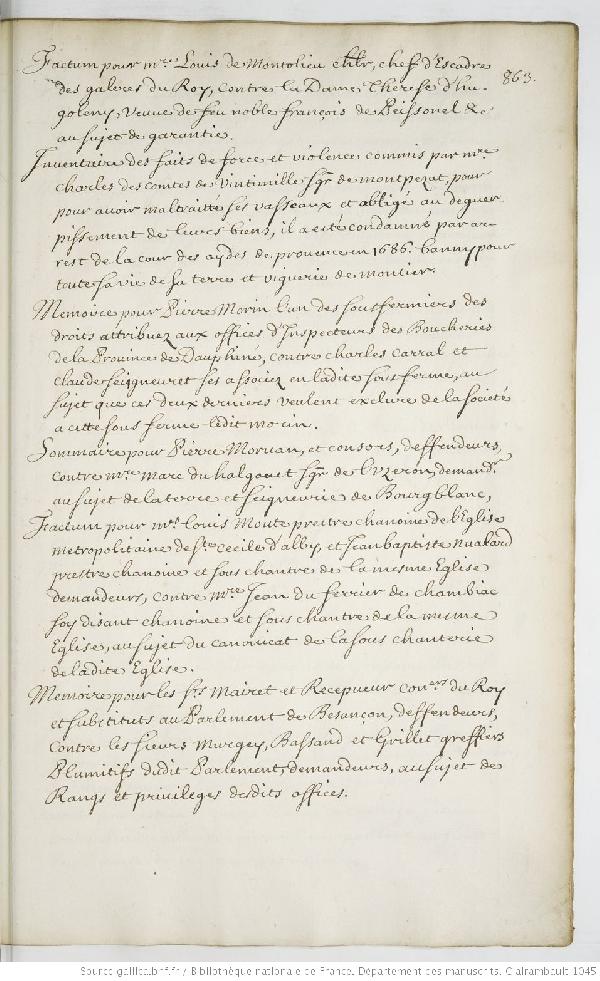 Factum pour mre Louis de Montolieu chlr, chef d'Escadre
863.
des galeres du Roy, contre la Dame Therese d'hu-
goleny, veuve de feu noble françois de Peissonel &c
au sujet de garantie.
Inventaire des faits de force et violence commis par mre
Charles des comtes de Vintimille sgr de montpezat, pour
pour avoir maltraitté ses vasseaux et obligé au deguer-
pissement de leurs biens, il a esté condamné par ar-
rest de la cour des aydes de provence en 1686. banny pour
toute sa vie de sa terre et viguerie de moutier.
Memoire pour Pierre Morin l'un des sousfermiers des
droits attribuez aux offices d'Inspecteurs des Boucheries
de la Province de Dauphiné, contre Charles Carral et
Claude seigneuret ses associez en ladite sous ferme, au
sujet que ces deux derniers veulent exclure de la societé
a cette sous ferme ledit morin.
Sommaire pour Pierre Moruan, et consors, deffendeurs,
contre mre marc du halgouet sgr de Luzeron, demandr
au sujet de la terre et seigneurie de Bourgblanc,
Factum pour mrs Louis Monte preitre chanoine de l'Eglise
metropolitaine de Ste Cecile d'alby, et Jean baptiste nualard
prestre chanoine et sous chantre de la mesme Eglise
demandeurs, contre mre Jean du ferrier de chambiac
soy disant chanoine et sous chantre de la mesme
Eglise, au sujet du canonicat de la sous chanterie
de ladite Eglise.
Memoire pour les srs Mairet et Recepueur coners du Roy
et substituts au Parlement de Besançon, deffendeurs,
contre les sieurs Murgey, Bassand et Grillet greffiers
Plumitifs dudit Parlement, demandeurs, au sujet de
Rangs et privileges desdits offices.
Source gallica.bnf.fr / Bibliothèque nationale de France. Département des manuscrits. Clairambault 1045